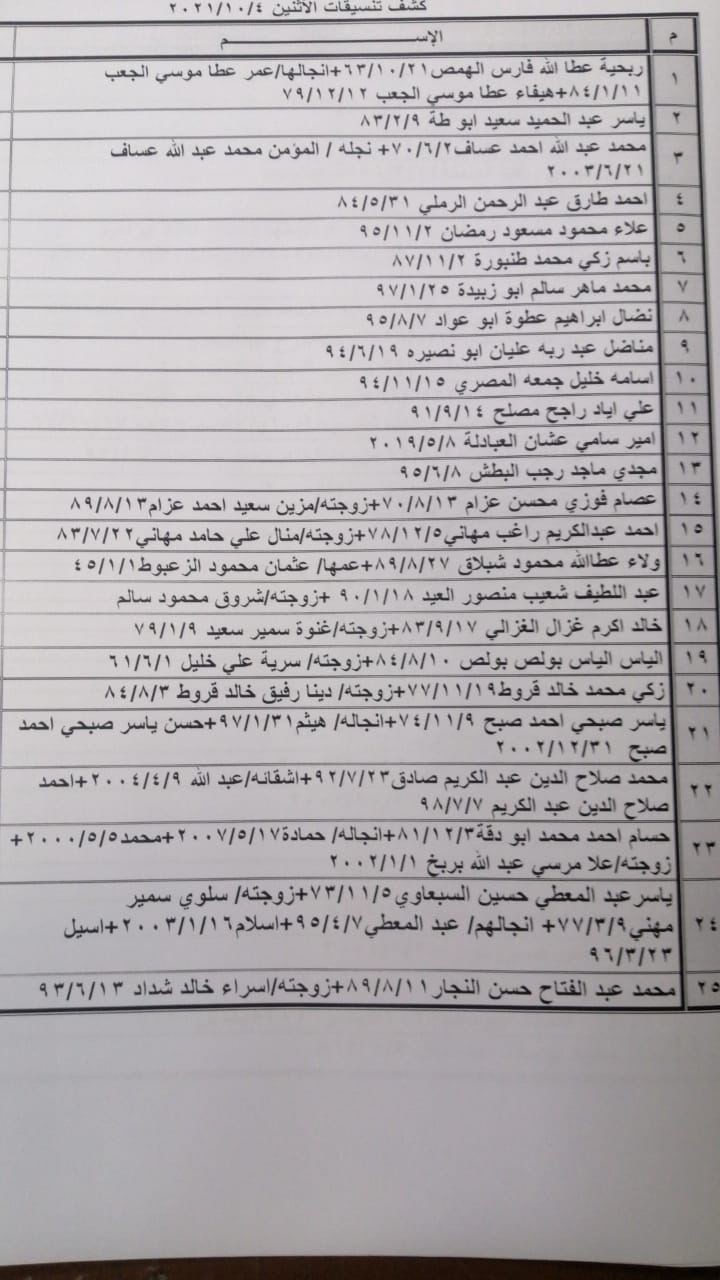 كشف تنسيقات الاثنين ٢٠٢١/١٠/٤
م الإســـــــــــم
١ ربحية عطا الله فارس الهمص٦٣/١٠/٢١+انجالها/عمر عطا موسي الجعب
٨٤/١/١١+هيفاء عطا موسي الجعب ٧٩/١٢/١٢
٢ ياسر عبد الحميد سعيد ابو طة ٨٣/٢/٩
٣ محمد عبد الله احمد عساف٧٠/٦/٢+ نجله / المؤمن محمد عبد الله عساف
٢٠٠٣/٦/٢١
٤ احمد طارق عبد الرحمن الرملي ٨٤/٥/٣١
٥ علاء محمود مسعود رمضان ٩٥/١١/٢
٦ باسم زكي محمد طنبورة ٨٧/١١/٢
٧ محمد ماهر سالم ابو زبيدة ٩٧/١/٢٥
٨ نضال ابراهيم عطوة ابو عواد ٩٥/٨/٧
٩ مناضل عبد ربه عليان ابو نصيره ٩٤/٦/١٩
١٠ اسامه خليل جمعه المصري ٩٤/١١/١٥
١١ علي اياد راجح مصلح ٩١/٩/١٤
١٢ امير سامي عشان العبادلة ٢٠١٩/٥/٨
١٣ مجدي ماجد رجب البطش ٩٥/٦/٨
١٤ عصام فوزي محسن عزام ٧٠/٨/١٣+زوجته/مزين سعيد احمد عزام٨٩/٨/١٣
١٥ احمد عبدالكريم راغب مهاني٧٨/١٢/٥+زوجته/منال علي حامد مهاني٨٣/٧/٢٢
١٦ ولاء عطاالله محمود شبلاق ٨٩/٨/٢٧+عمها/ عثمان محمود الزعبوط٤٥/١/١
١٧ عبد اللطيف شعيب منصور العيد ٩٠/١/١٨ +زوجته/شروق محمود سالم
١٨ خالد اكرم غزال الغزالي ٨٣/٩/١٧+زوجته/غنوة سمير سعيد ٧٩/١/٩
١٩ الياس الياس بولص بولص ٨٤/٨/١٠+زوجته/ سرية علي خليل ٦١/٦/١
٢٠ زكي محمد خالد قروط٧٧/١١/١٩+زوجته/ دينا رفيق خالد قروط ٨٤/٨/٣
٢١ ياسر صبحي احمد صبح ٧٤/١١/٩+انجاله/ هيثم٩٧/١/٣١+حسن ياسر صبحي احمد
صبح ٢٠٠٢/١٢/٣١
٢٢ محمد صلاح الدين عبد الكريم صادق٩٢/٧/٢٣+اشقائه/عبد الله ٢٠٠٤/٤/٩+احمد
صلاح الدين عبد الكريم ٩٨/٧/٧
٢٣ حسام احمد محمد ابو دقة٨١/١٢/٣+انجاله/ حمادة٢٠٠٧/٥/١٧+محمد٢٠٠٠/٥/٥+
زوجته/علا مرسي عبد الله بربخ ٢٠٠٢/١/١
ياسر عبد المعطي حسين السبعاوي٧٣/١١/٥+زوجته/ سلوي سمير
٢٤ مهني٧٧/٣/٩+ انجالهم/ عبد المعطي٩٥/٤/٧+اسلام٢٠٠٣/١/١٦+اسيل
٩٦/٣/٢٣
٢٥ محمد عبد الفتاح حسن النجار٨٩/٨/١١+زوجته/اسراء خالد شداد ٩٣/٦/١٣